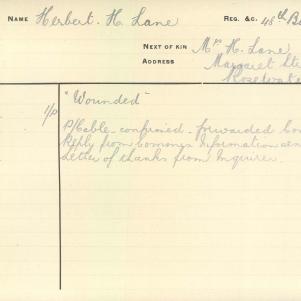 NAME Herbert. H. Lane REG. &C. 48th B
NEXT OF KIN Mrs H. Lane
ADDRESS Margaret St
Rosewate
1/p "Wounded"
P/Cable confirmed. forwarded
Reply from Information
Letter of thanks from Inquirer.